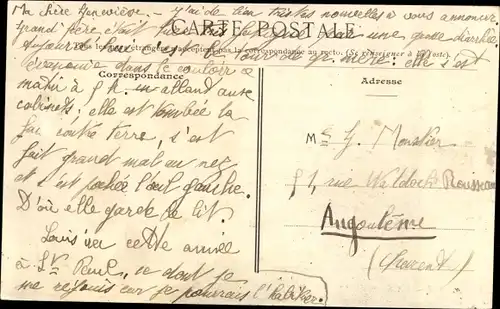 Ma chère Geneviève, j'ai de bien tristes nouvelles à vous annoncer
CARTE POSTALE
Grand père était une grosse diarrhée
Tous les pays étrangers n'acceptent pas la correspondance au recto. (Se renseigner à la Poste).
Aujourd'hui le tour de gr. mère: elle s'est
évanouie dans le couloir ce
Correspondance
Adresse
matin à 9 h. en allant aux
cabinets, elle est tombée la
contre terre, s'est
fait grand mal au nez
et s'est pochée l'œil gauche.
D'où elle garde le lit.
Louis ira cette année
à St Paul, ce dont je
me réjouis car je pourrais l'habiller.
Ms G. Monstier
51, rue Waldeck Rousseau
Angoulême
(Charente)